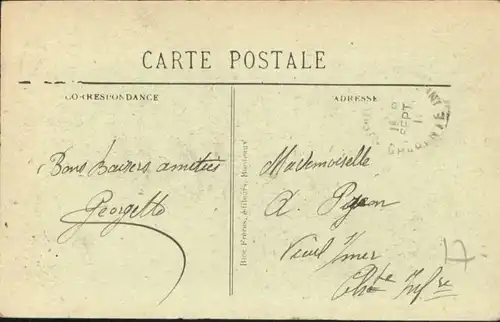 CARTE POSTALE
CORRESPONDANCE
ADRESSE
SEPT
11
Bons baisers amitiés
Georgette
Mademoiselle
A. Pigeon
Vieil Imer
Chte Infre
Frères, éditeurs, Bordeaux